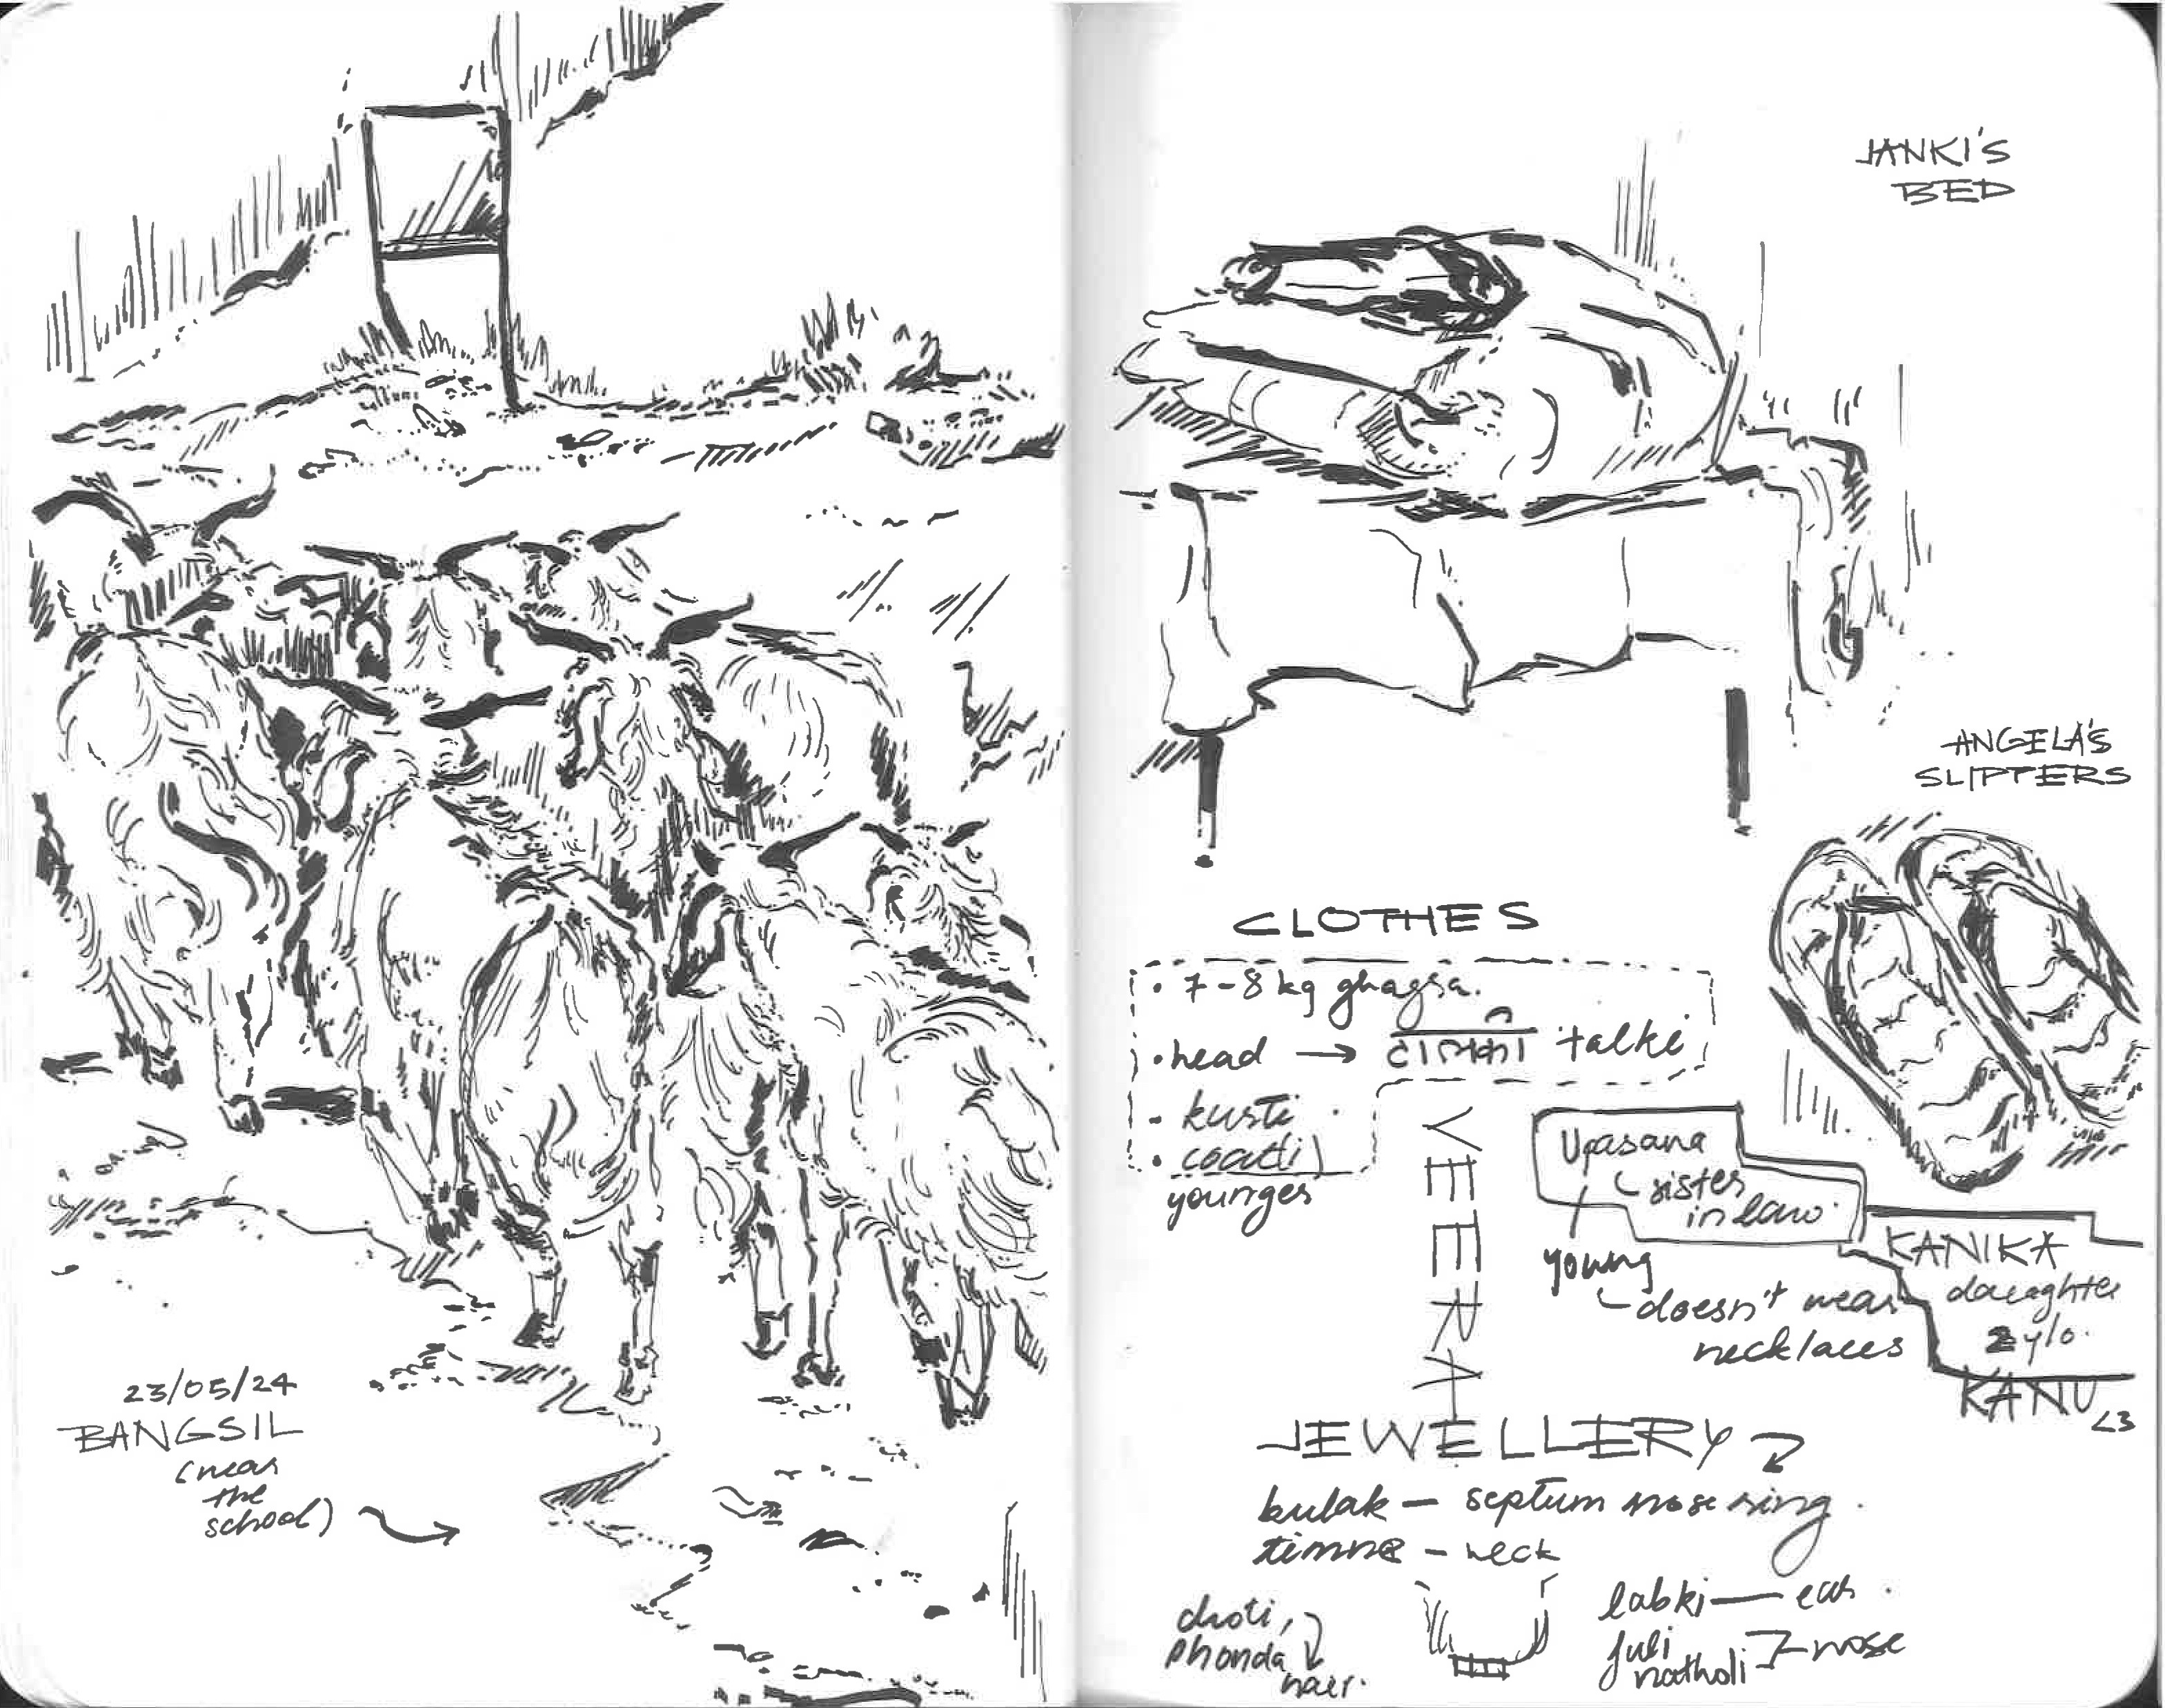 23/05/24
BANGSIL
(near
the
school)
JANKI'S
BED
ANGELA'S
SLIPPERS
CLOTHES
• 7-8 kg ghagra.
• head → टालकी talki
- kurti
• coatli)
younger
VEERA
Upasana
sister
in law.
young
doesn't wear
necklaces
KANIKA
daughter
2 y/o.
KANU <3
JEWELLERY
bulak — septum nose ring.
timne — neck
choti,
phonda
hair.
labki — ear.
fuli
natholi
nose